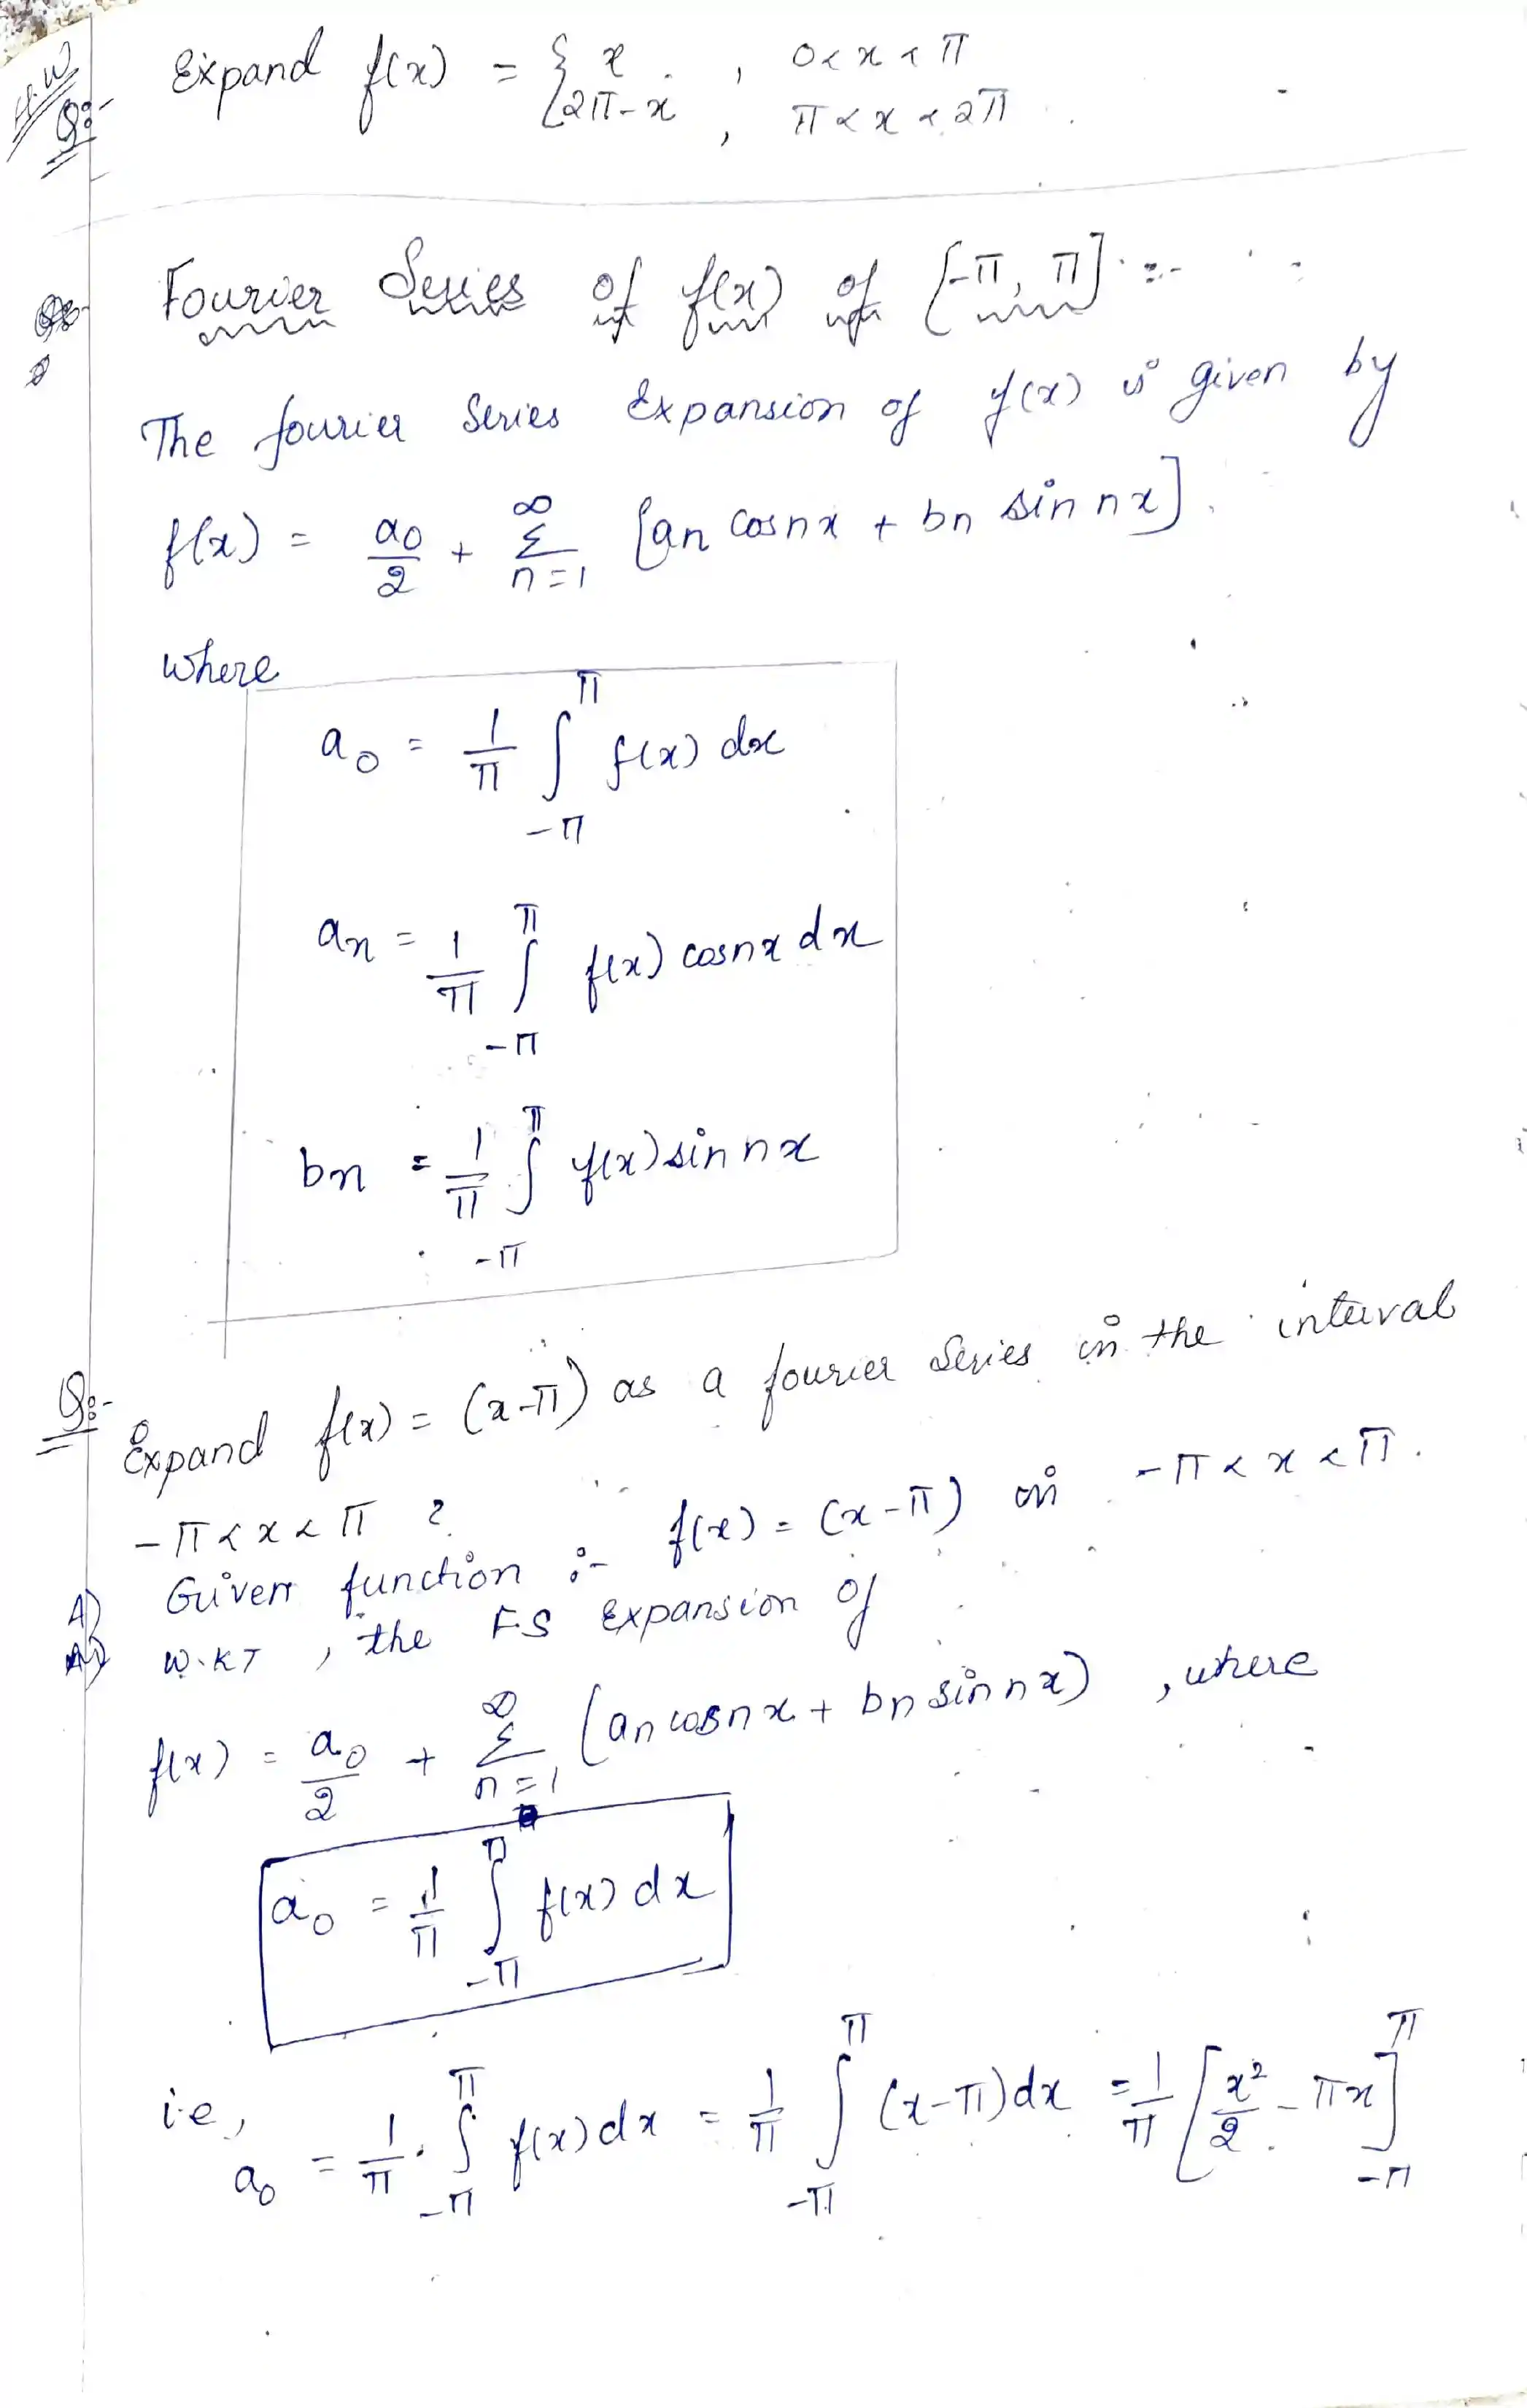 H.W
Q:- Expand f(x) = { x , 0<x<π
2π-x , π<x<2π .
Fourier Series of f(x) of [-π, π] :-
The fourier Series Expansion of f(x) is given by
f(x) = a0/2 + ∞Σn=1 [an cosnx + bn sin nx].
where
a0 = 1/π ∫-π^π f(x) dx
an = 1/π ∫-π^π f(x) cosnx dx
bn = 1/π ∫-π^π f(x) sin nx
Q:- Expand f(x) = (x-π) as a fourier Series in the interval
-π<x<π ?
A) Given function :- f(x) = (x-π) in -π<x<π.
W.KT , the F.S Expansion of
f(x) = a0/2 + ∞Σn=1 (an cosnx + bn sin nx) , where
a0 = 1/π ∫-π^π f(x) dx
i.e, a0 = 1/π . ∫-π^π f(x) dx = 1/π ∫-π^π (x-π) dx = 1/π [x²/2 - πx]-π^π